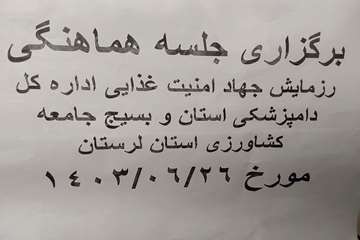 برگزاری جلسه هماهنگی
رزمایش جهاد امنیت غذایی اداره کل
دامپزشکی استان و بسیج جامعه
کشاورزی استان لرستان
مورخ ۱۴۰۳/۰۶/۲۶